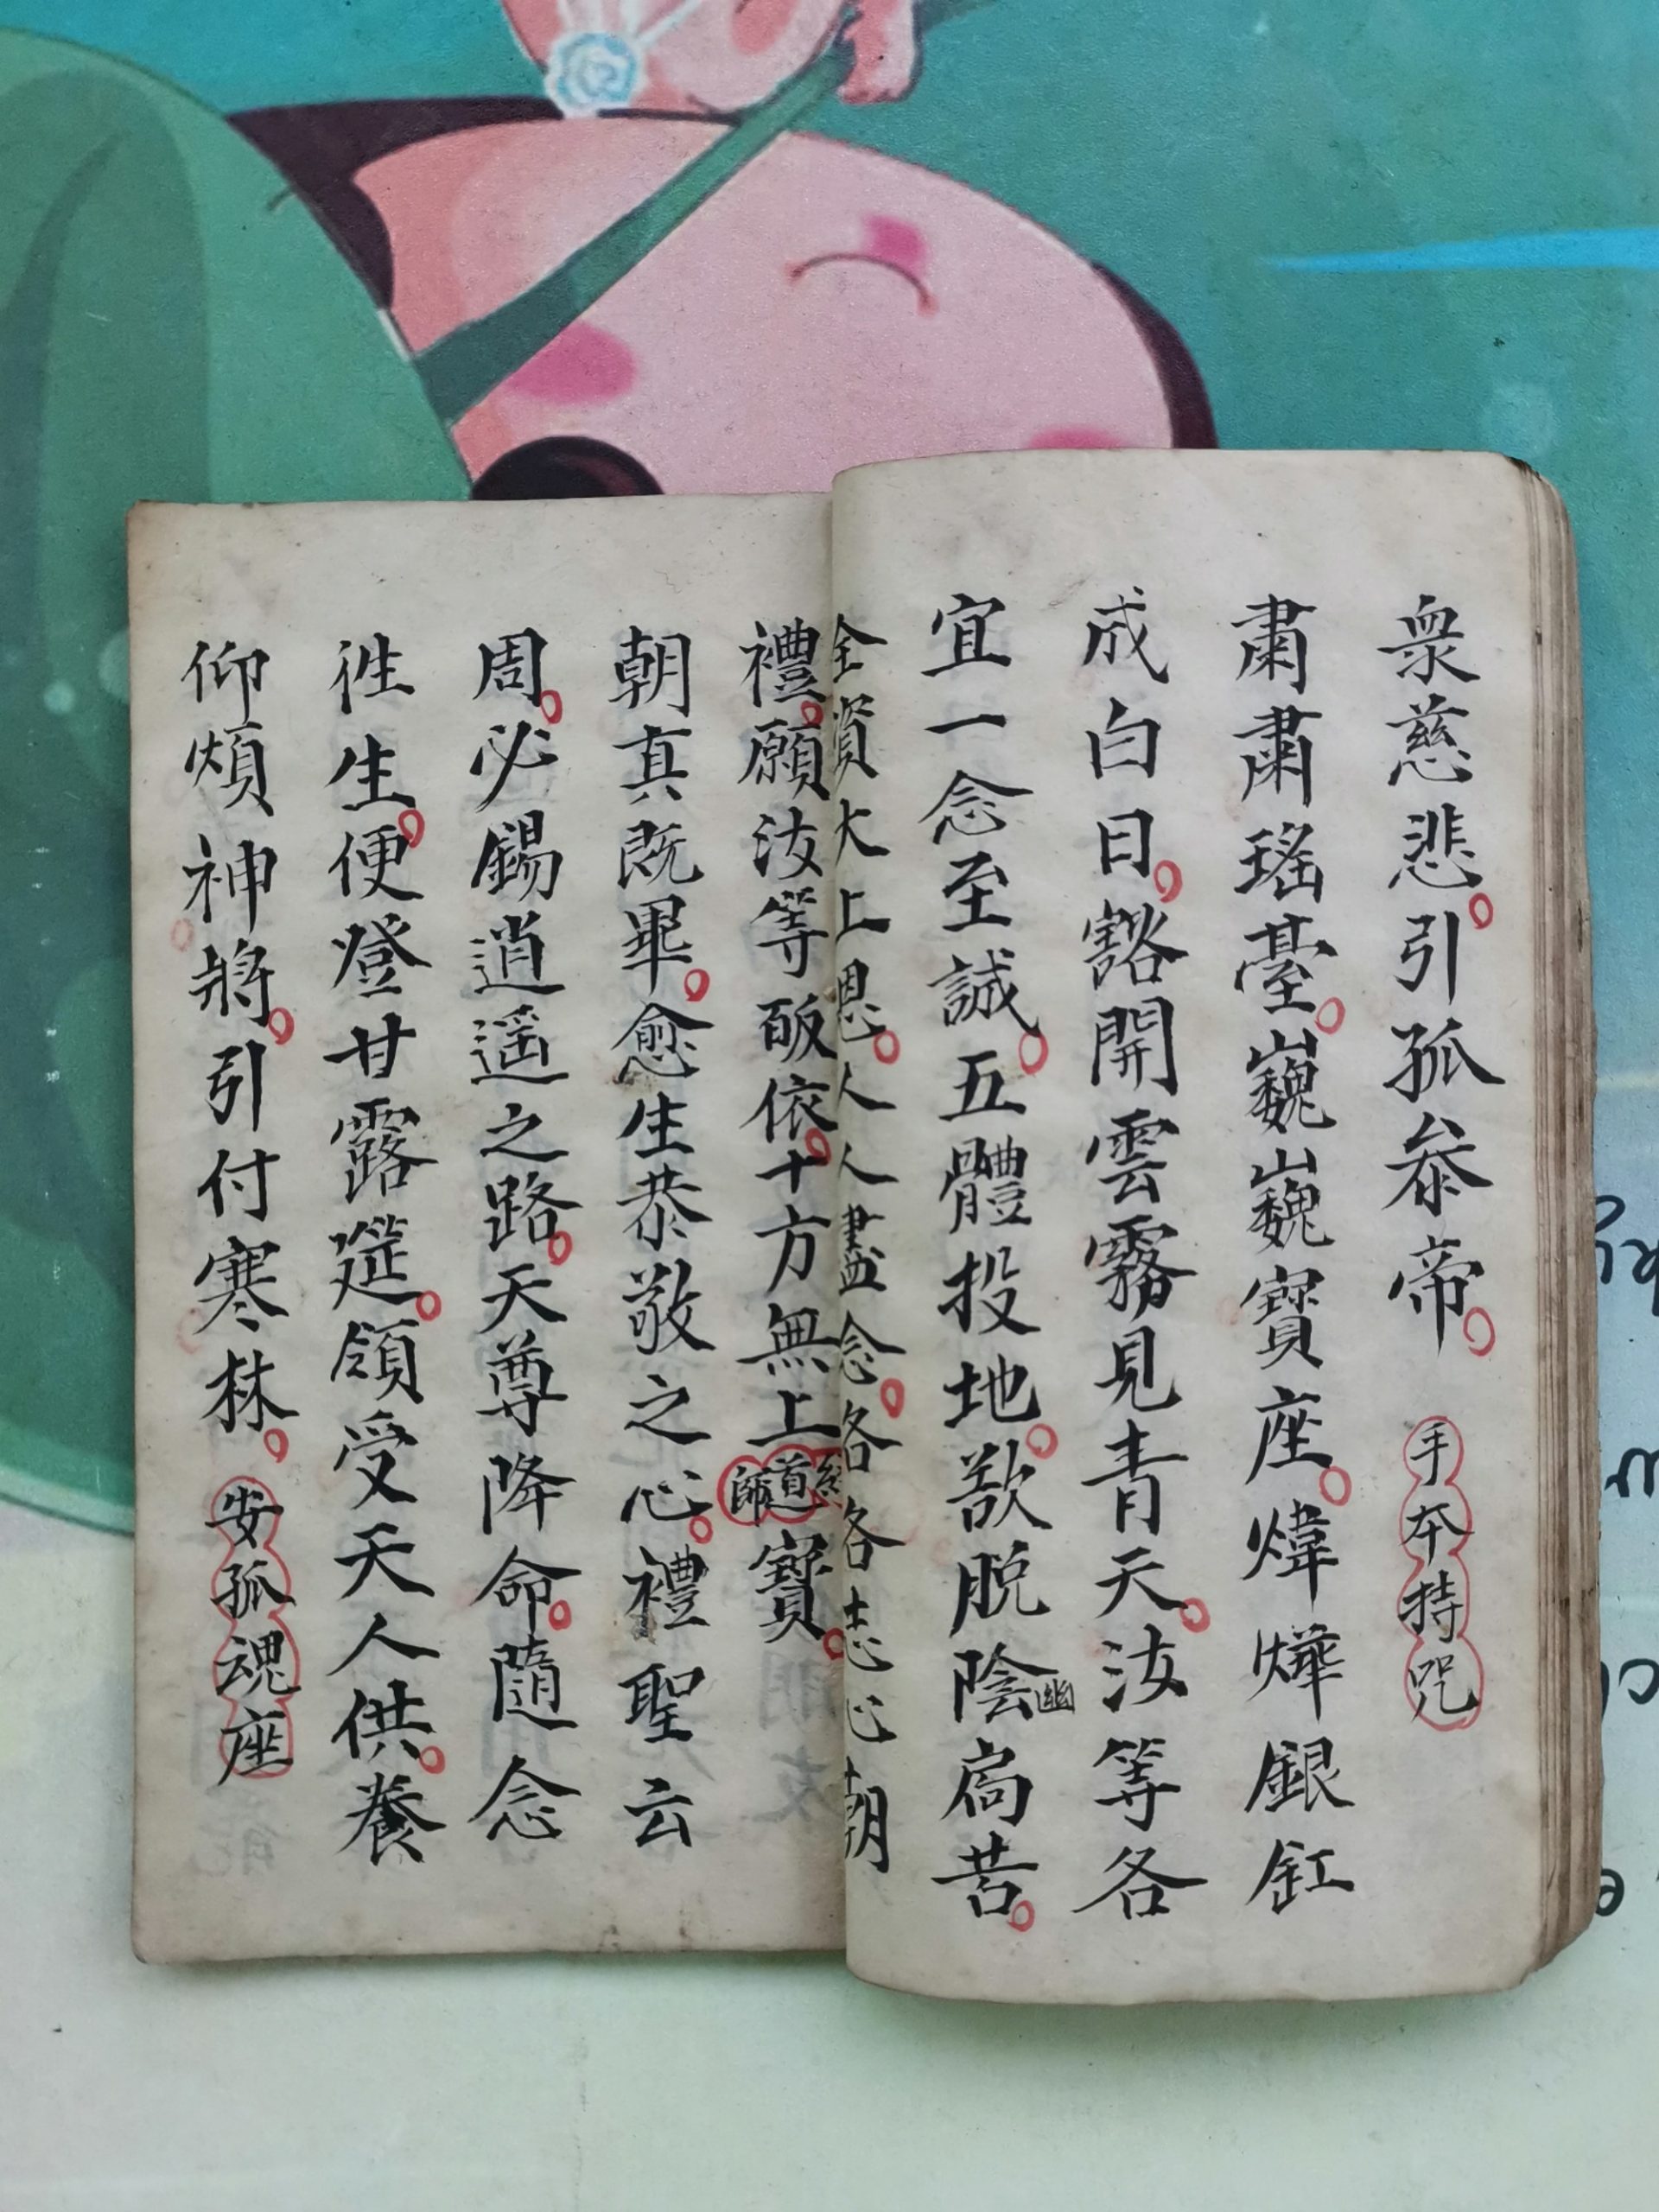 衆慈悲引孤叅帝 手本持咒
肅肅瑤臺巍巍巍巍寶座煒燁銀釭
成白日豁開雲霧見青天汝等各
宜一念至誠五體投地欲脫陰幽扃苦
全資大上恩人人盡念各各志心朝
禮願汝等皈依十方無上經道師寶
朝真既畢愈生恭敬之心禮聖云
周必錫逍遥之路天尊降命隨念
徃生便登甘露筵領受天人供養
仰煩神將引付寒林 安孤魂座